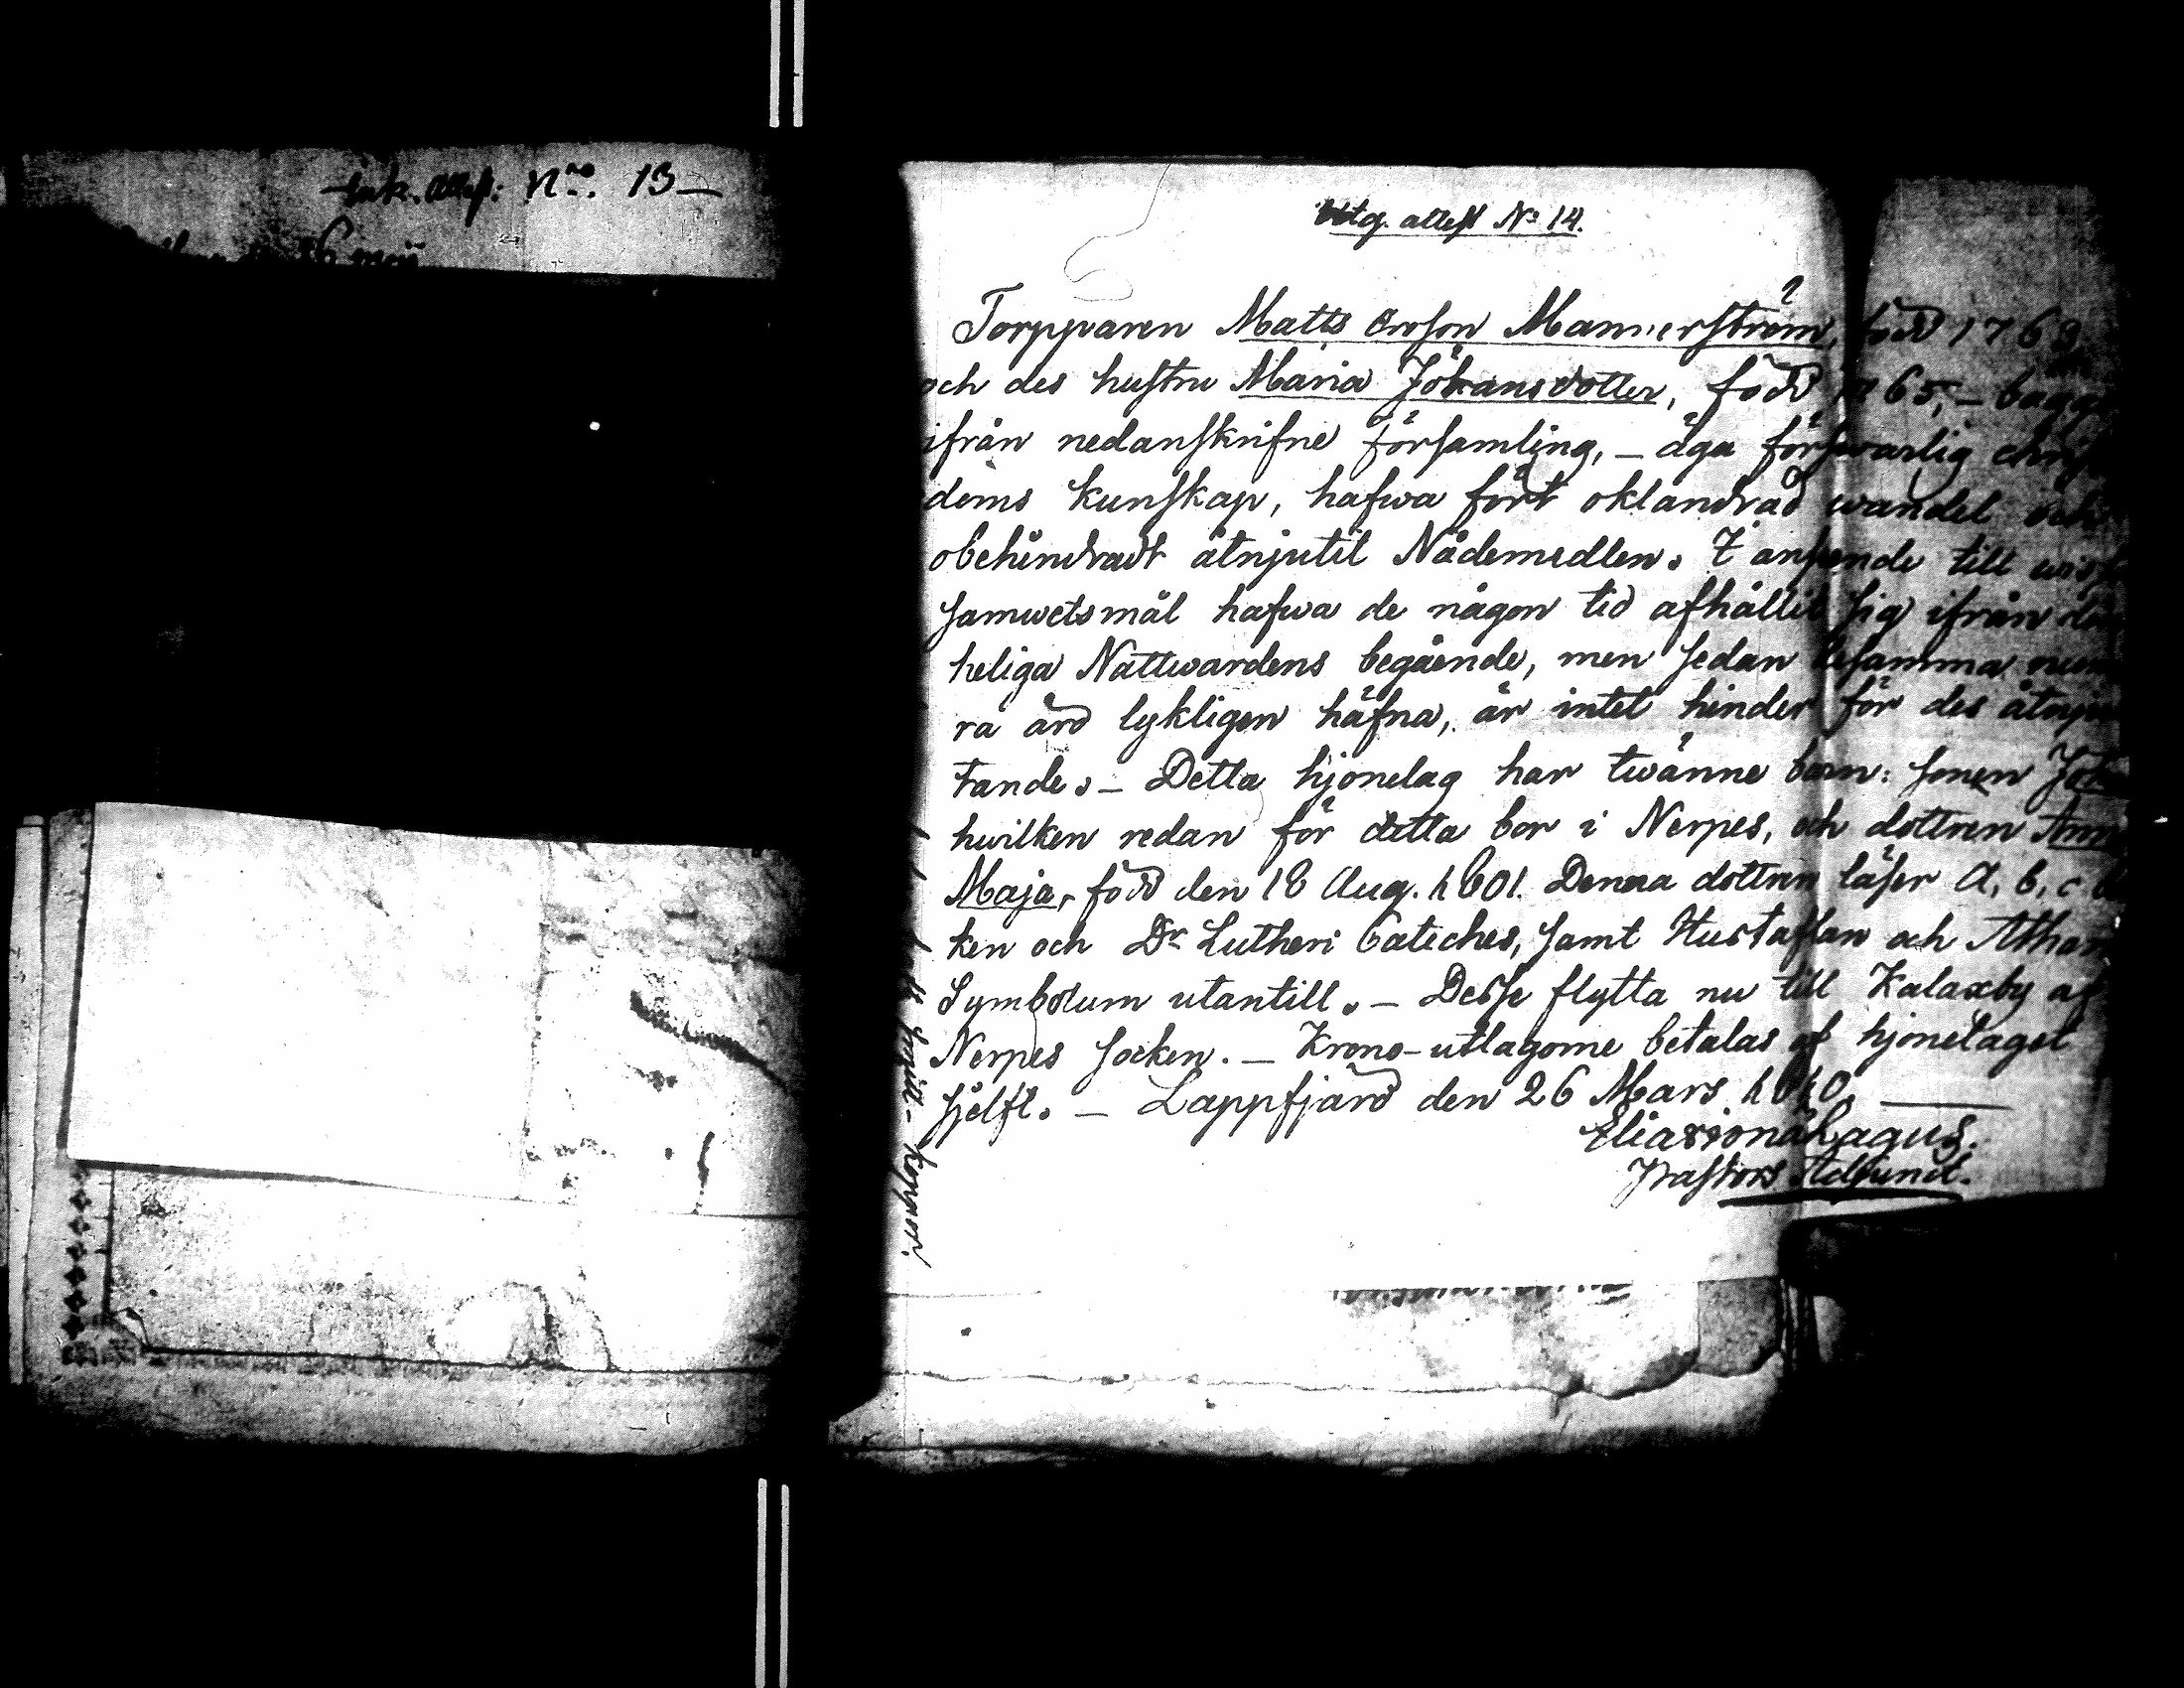 ink. Attest: Nro. 13 —
Utg. attest No 14.
Torpparen Matts Ersson Mannerström, född 1763
och des hustru Maria Johansdotter, född 1765, – bägg
ifrån nedanskrifne församling, – äga förswarlig chri
doms kunskap, hafwa fört oklandrad wandel och
obehindradt åtnjutit Nådemedlen. I anseende till wis
samwetsmål hafwa de någon tid afhållit sig ifrån
heliga Nattwardens begående, men sedan desamma num
ra äro lykligen häfna, är intet hinder för des åtnju
tande. – Detta hjonelag har twänne barn: sonen Joh
hwilken redan för detta bor i Nerpes, och dottren Ann
Maja, född den 18 Aug. 1801. Denna dottren läser A, b, c
ken och Dr Lutheri Cateches, samt Hustaflan och Athan
Symbolum utantill. – Desse flytta nu till Kalaxby af
Nerpes socken. – Krono-utlagorne betalas af hjonelaget
sjelft. – Lappfjärd den 26 Mars 1810.
Lagus.
Pastors Adjunct.
koppor.